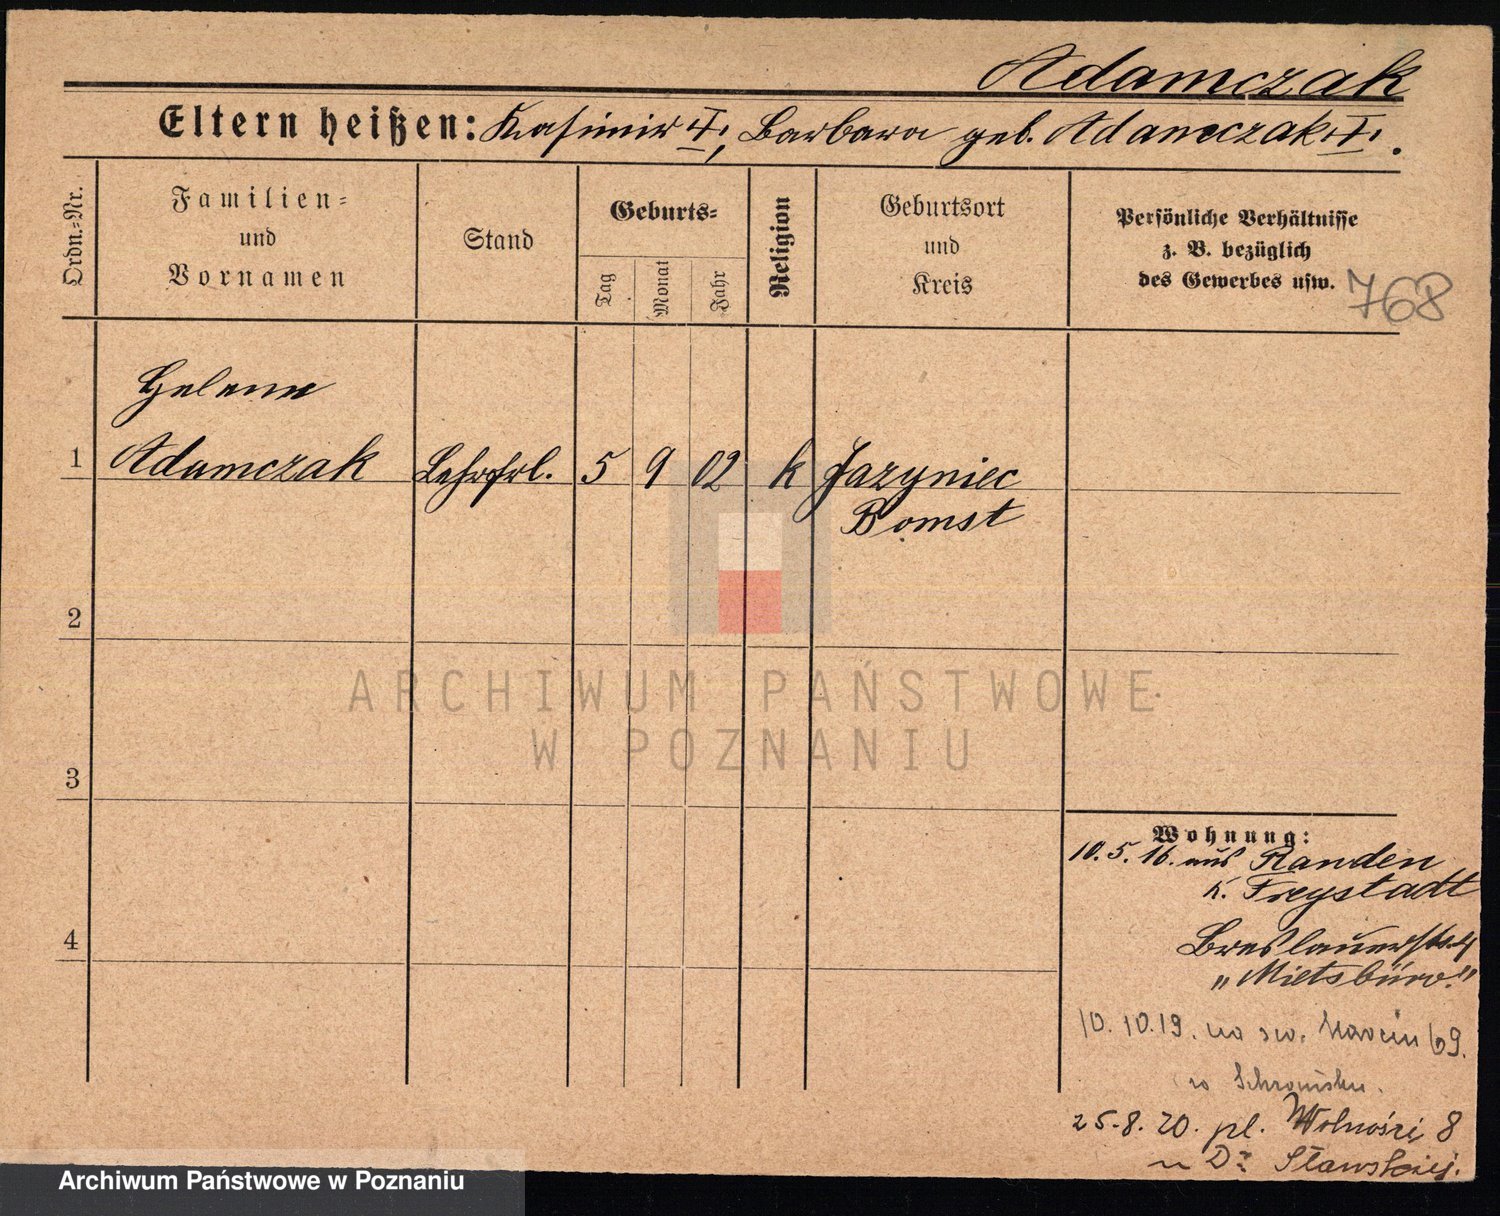 Adamczak
Eltern heißen: Kasimir †, Barbara geb. Adamczak †.
Ordn.-Nr.
Familien-
und
Vornamen
Stand
Geburts-
Tag
Monat
Jahr
Religion
Geburtsort
und
Kreis
Persönliche Verhältnisse
z. B. bezüglich
des Gewerbes usw.
768
Helene
1 Adamczak Lehrfrl. 5 9 02 k Jazyniec
Bomst
2
ARCHIWUM PAŃSTWOWE
W POZNANIU
3
Wohnung:
10.5.16. aus Randen
K. Freystadt
4
Breslauerstr. 4
"Mietsbüro."
10.10.19. na św. Marcin 69.
w Schronisku.
25.8.20. pl. Wolności 8
u Dr Sławskiej.
Archiwum Państwowe w Poznaniu